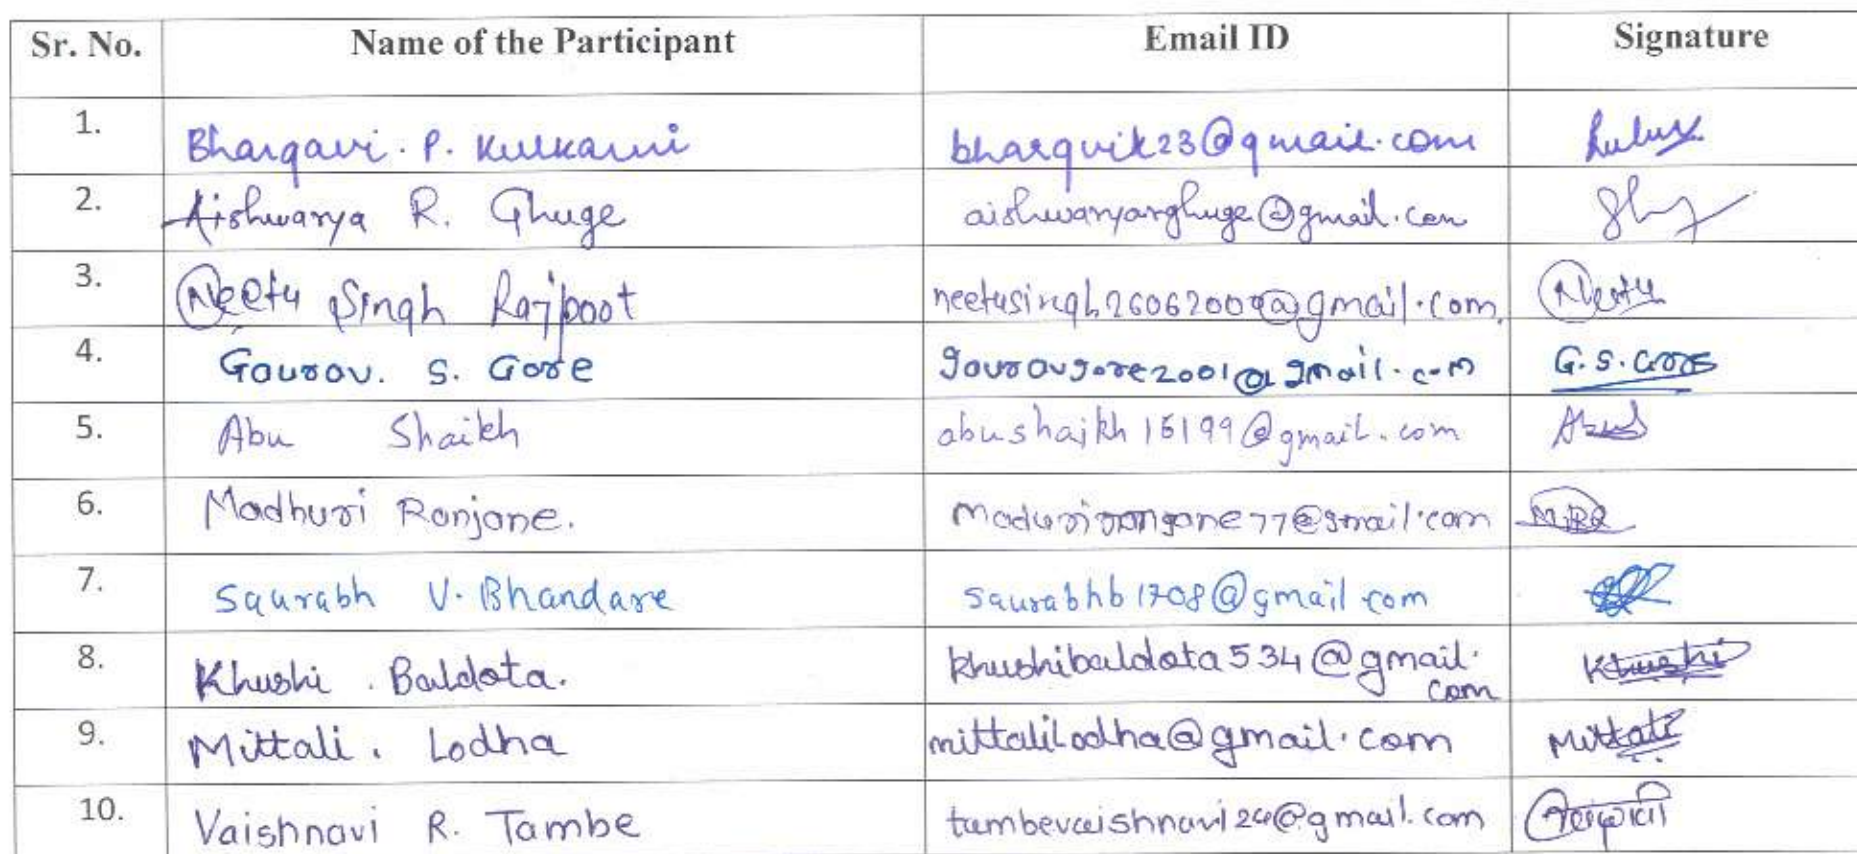 Sr. No. Name of the Participant Email ID Signature
1. Bhargavi. P. Kulkarni bhargvik23@gmail.com
2. Aishwarya R. Ghuge aishwaryarghuge@gmail.com
3. Neetu Singh Rajpoot neetusingh26062000@gmail.com
4. Gourav. S. Gore gouravgore2001@gmail.com G.S.Gore
5. Abu Shaikh abushaikh15199@gmail.com
6. Madhuri Ranjane.
7. Saurabh V. Bhandare saurabhb1708@gmail.com
8. Khushi . Baldota. khushibaldota534@gmail. Khushi
com
9. Mittali . Lodha mittalilodha@gmail.com Mittali
10. Vaishnavi R. Tambe tambevaishnavi24@gmail.com